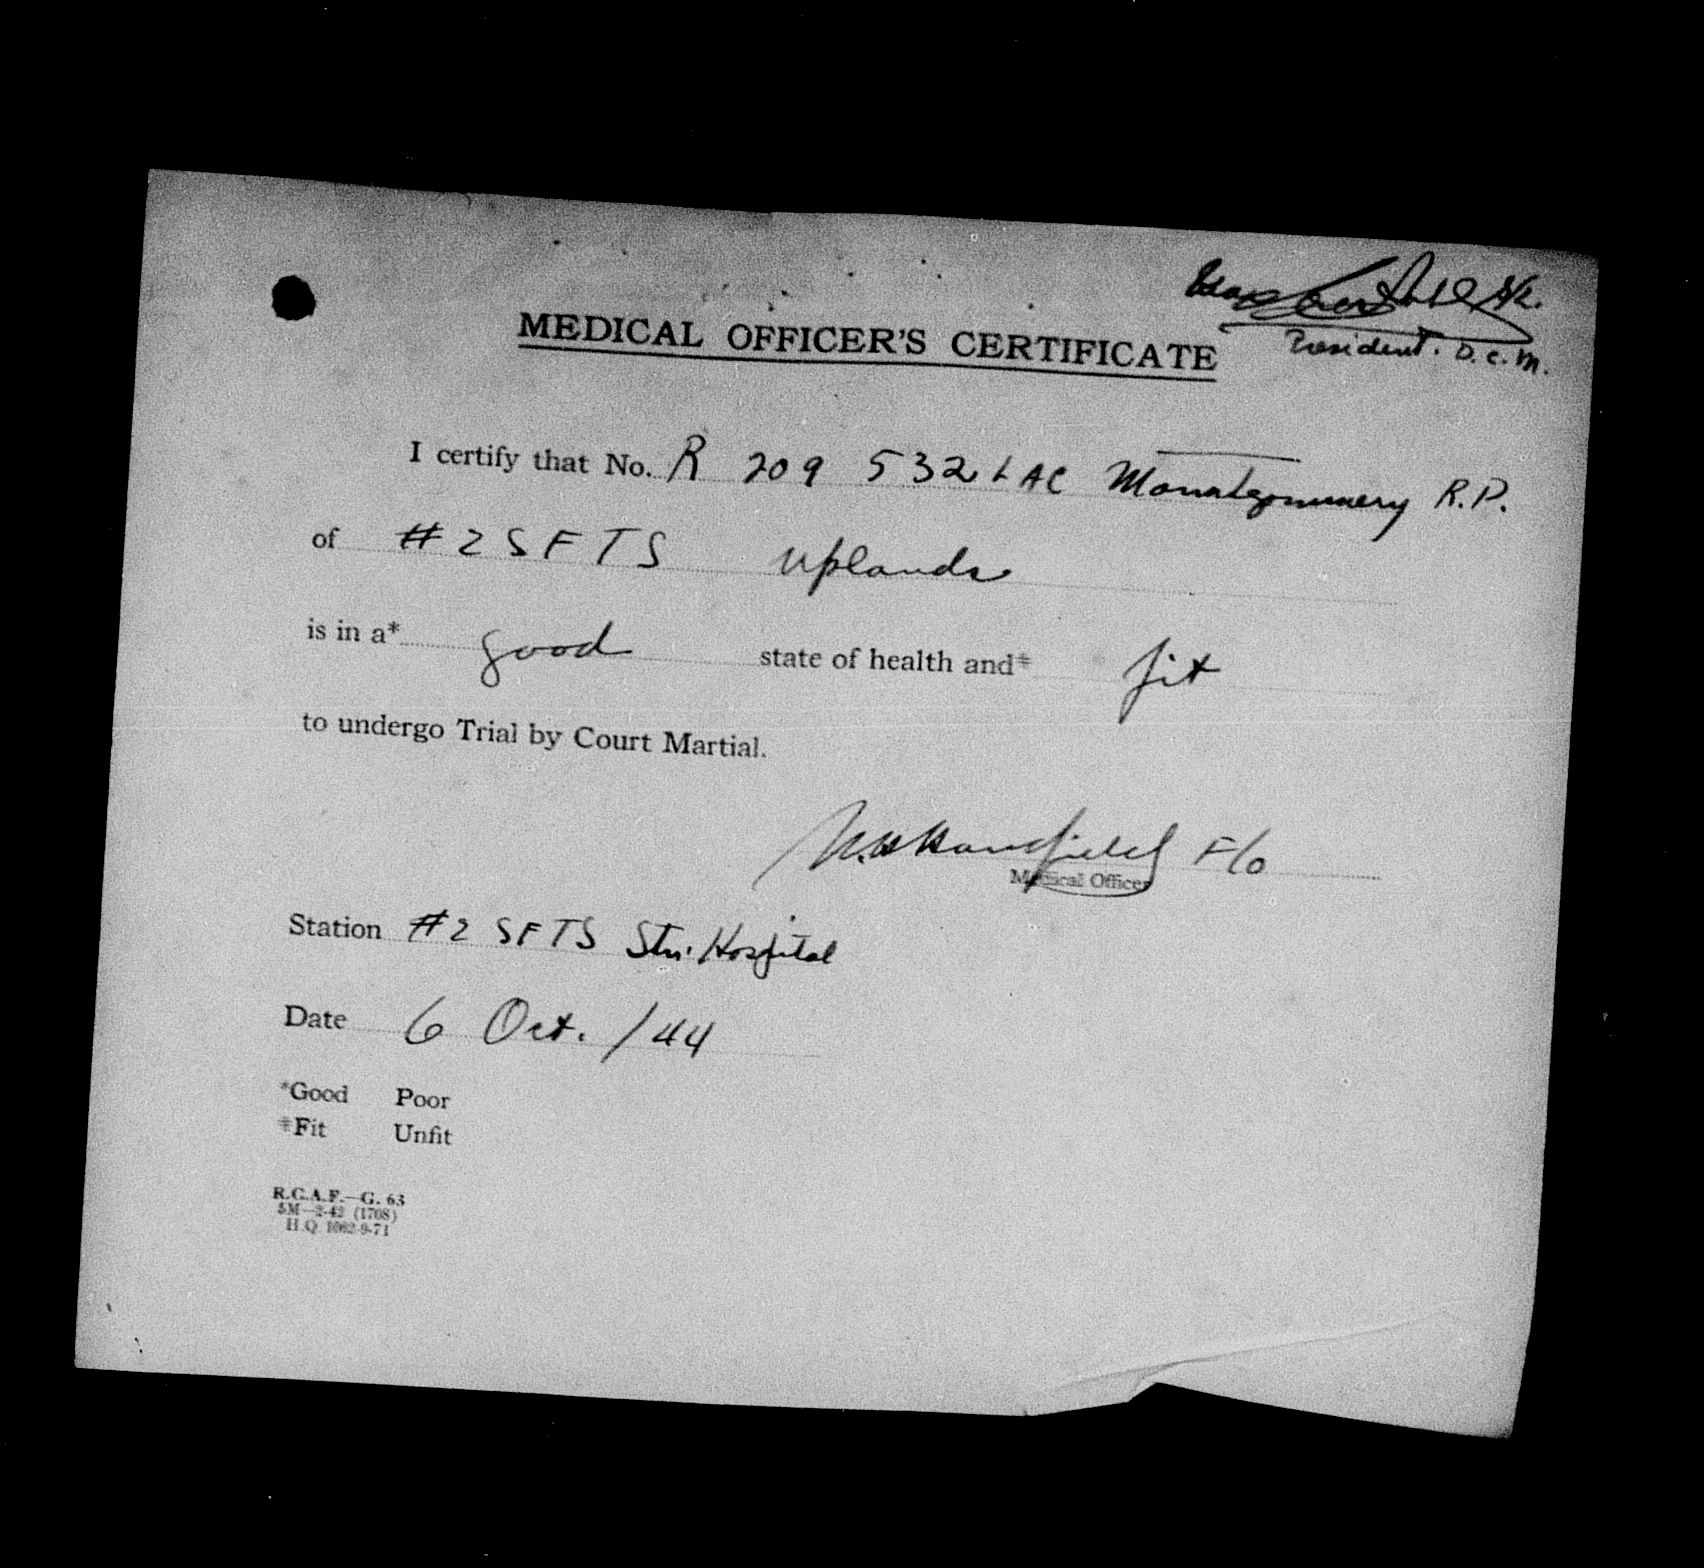 President. D.C.M.
MEDICAL OFFICER'S CERTIFICATE
I certify that No. R 209 532 LAC Monatgommery R.P.
of #2 SFTS Uplands
is in a* good state of health and‡ fit
to undergo Trial by Court Martial.
Mansfield F/O
Medical Officer
Station #2 SFTS Stn. Hospital
Date 6 Oct. /44
*Good Poor
‡Fit Unfit
R.C.A.F.—G. 63
5M—2-42 (1708)
H.Q. 1062-9-71